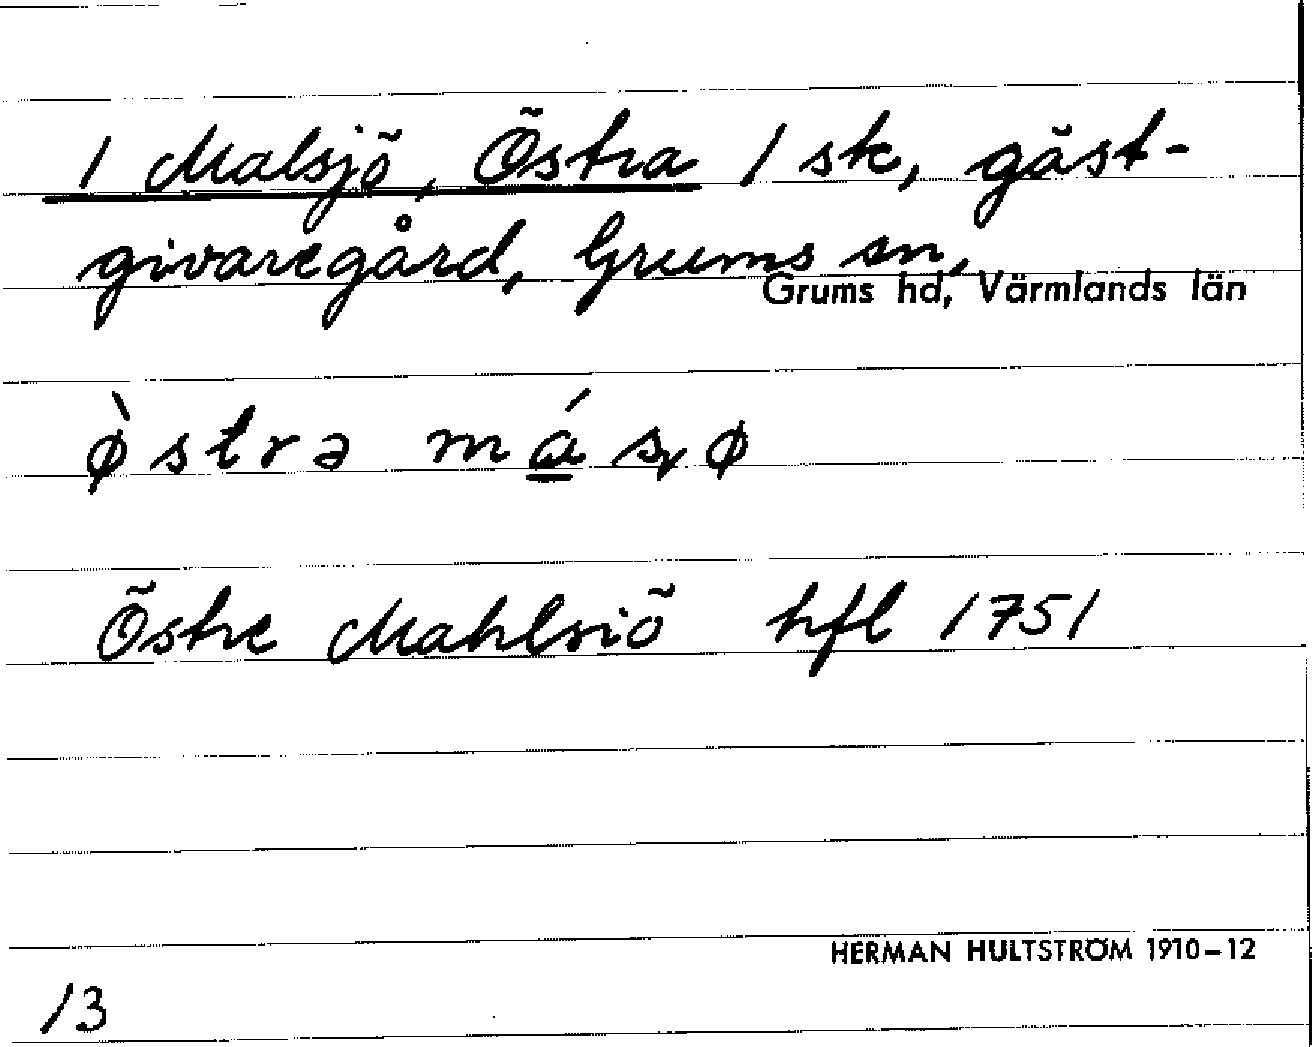 1 Malsjö, Östra 1 sk, gäst-
givaregård, Grums sn,
Grums hd, Värmlands län
ø̀strə má̱sɟø
Östre Mahlsiö hfl 1751
HERMAN HULTSTRÖM 1910–12
13